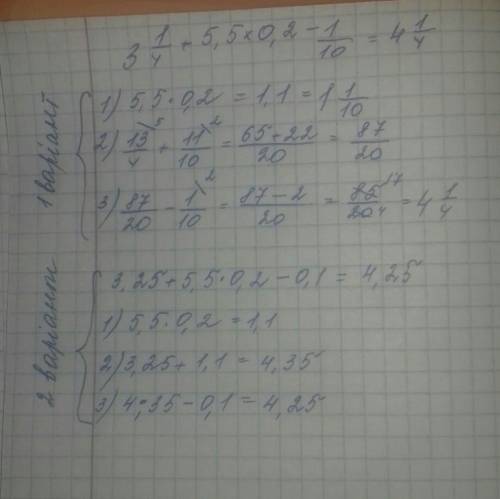 3 1/4 + 5,5 × 0,2 - 1/10 = 4 1/4
1 варіант
1) 5,5 · 0,2 = 1,1 = 1 1/10
2) 13/4 \5 + 11/10 \2 = 65+22/20 = 87/20
3) 87/20 - 1/10 \2 = 87-2/20 = 85/20 17/4 = 4 1/4
2 варіант
3,25 + 5,5 · 0,2 - 0,1 = 4,25
1) 5,5 · 0,2 = 1,1
2) 3,25 + 1,1 = 4,35
3) 4,35 - 0,1 = 4,25